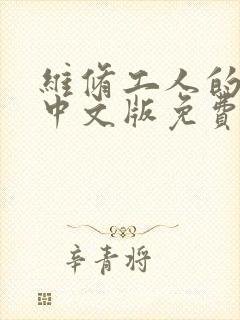 維脩工人的
中文版免費
辛青将